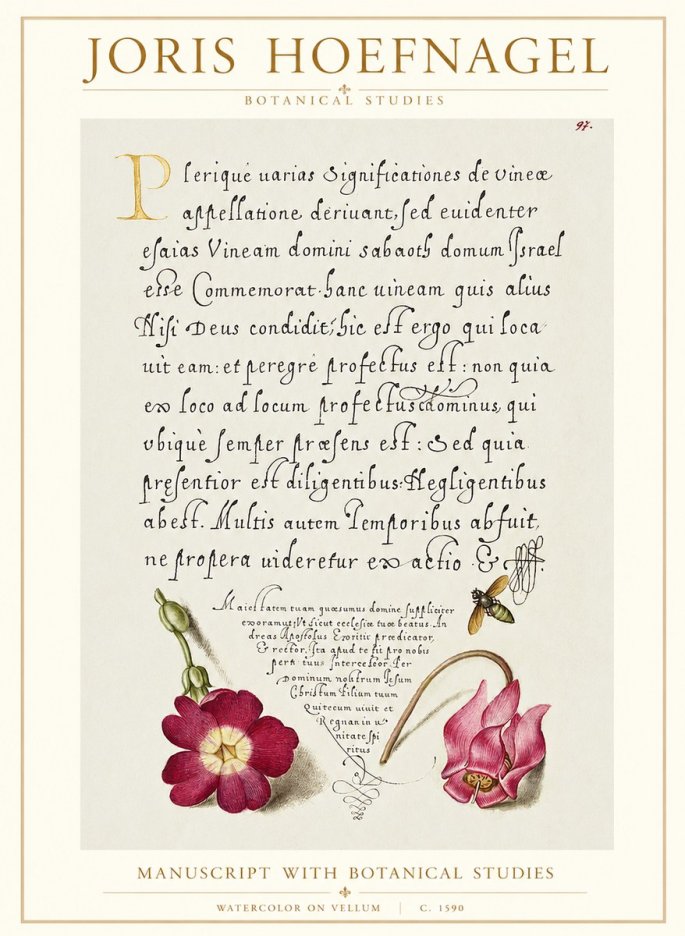 JORIS HOEFNAGEL
BOTANICAL STUDIES
97.
Plerique uarias Significationes de vineæ
appellatione deriuant, sed euidenter
esaias Vineam domini sabaoth domum Israel
esse Commemorat. hanc uineam quis alius
Nisi Deus condidit, hic est ergo qui loca
uit eam: et peregrè profectus est: non quia
ex loco ad locum profectus dominus, qui
vbiquè semper præsens est: Sed quia
presentior est diligentibus: Negligentibus
abest. Multis autem Temporibus abfuit,
ne propera uideretur exactio. &
Maiestatem tuam quæsumus domine suppliciter
exoramus, Vt sicut ecclesiæ tuæ beatus. An
dreas Apostolus Exoritir prædicator,
& rector, Ita apud te sit pro nobis
perk tuus Intercessor. Per
Dominum nostrum Iesum
Christum Filium tuum
Qui tecum uiuit et
Regnan in u
nitate spi
ritus
MANUSCRIPT WITH BOTANICAL STUDIES
WATERCOLOR ON VELLUM | C. 1590